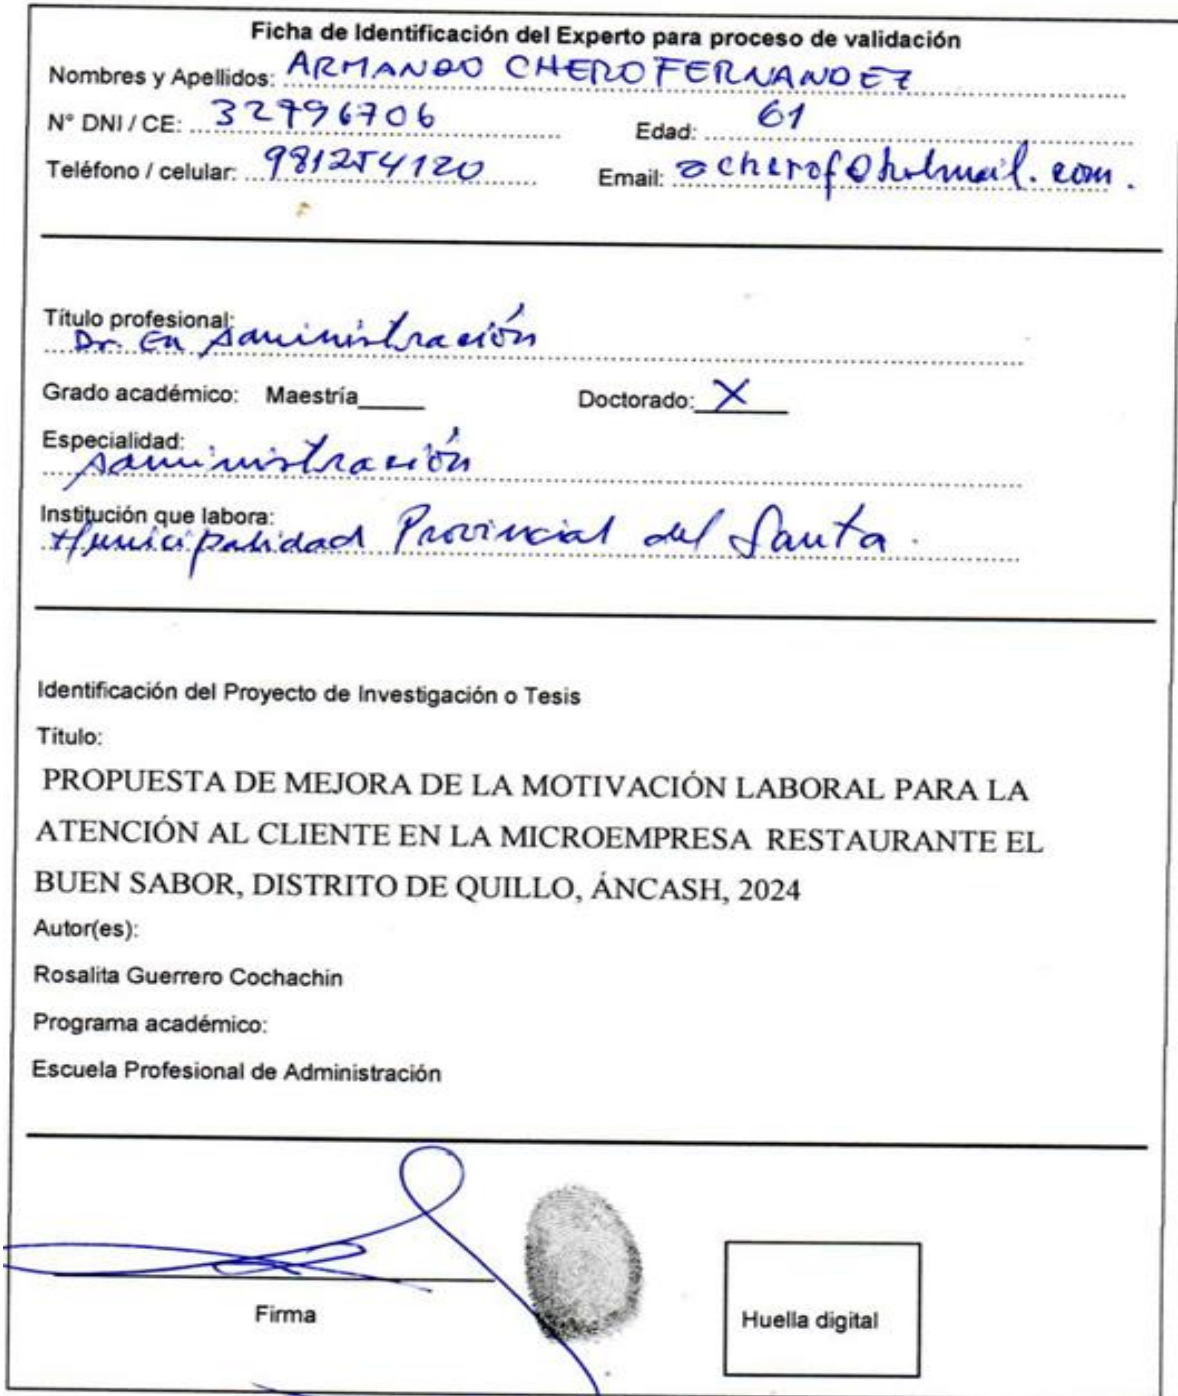 Ficha de Identificación del Experto para proceso de validación
Nombres y Apellidos: ARMANDO CHERO FERNANDEZ
N° DNI / CE: 32796706 Edad: 61
Teléfono / celular: 981254120 Email: acherof@hotmail.com.
Título profesional:
Dr. En Administración
Grado académico: Maestría____ Doctorado: X
Especialidad:
Administración
Institución que labora:
Municipalidad Provincial del Santa.
Identificación del Proyecto de Investigación o Tesis
Título:
PROPUESTA DE MEJORA DE LA MOTIVACIÓN LABORAL PARA LA
ATENCIÓN AL CLIENTE EN LA MICROEMPRESA RESTAURANTE EL
BUEN SABOR, DISTRITO DE QUILLO, ÁNCASH, 2024
Autor(es):
Rosalita Guerrero Cochachin
Programa académico:
Escuela Profesional de Administración
Firma
Huella digital